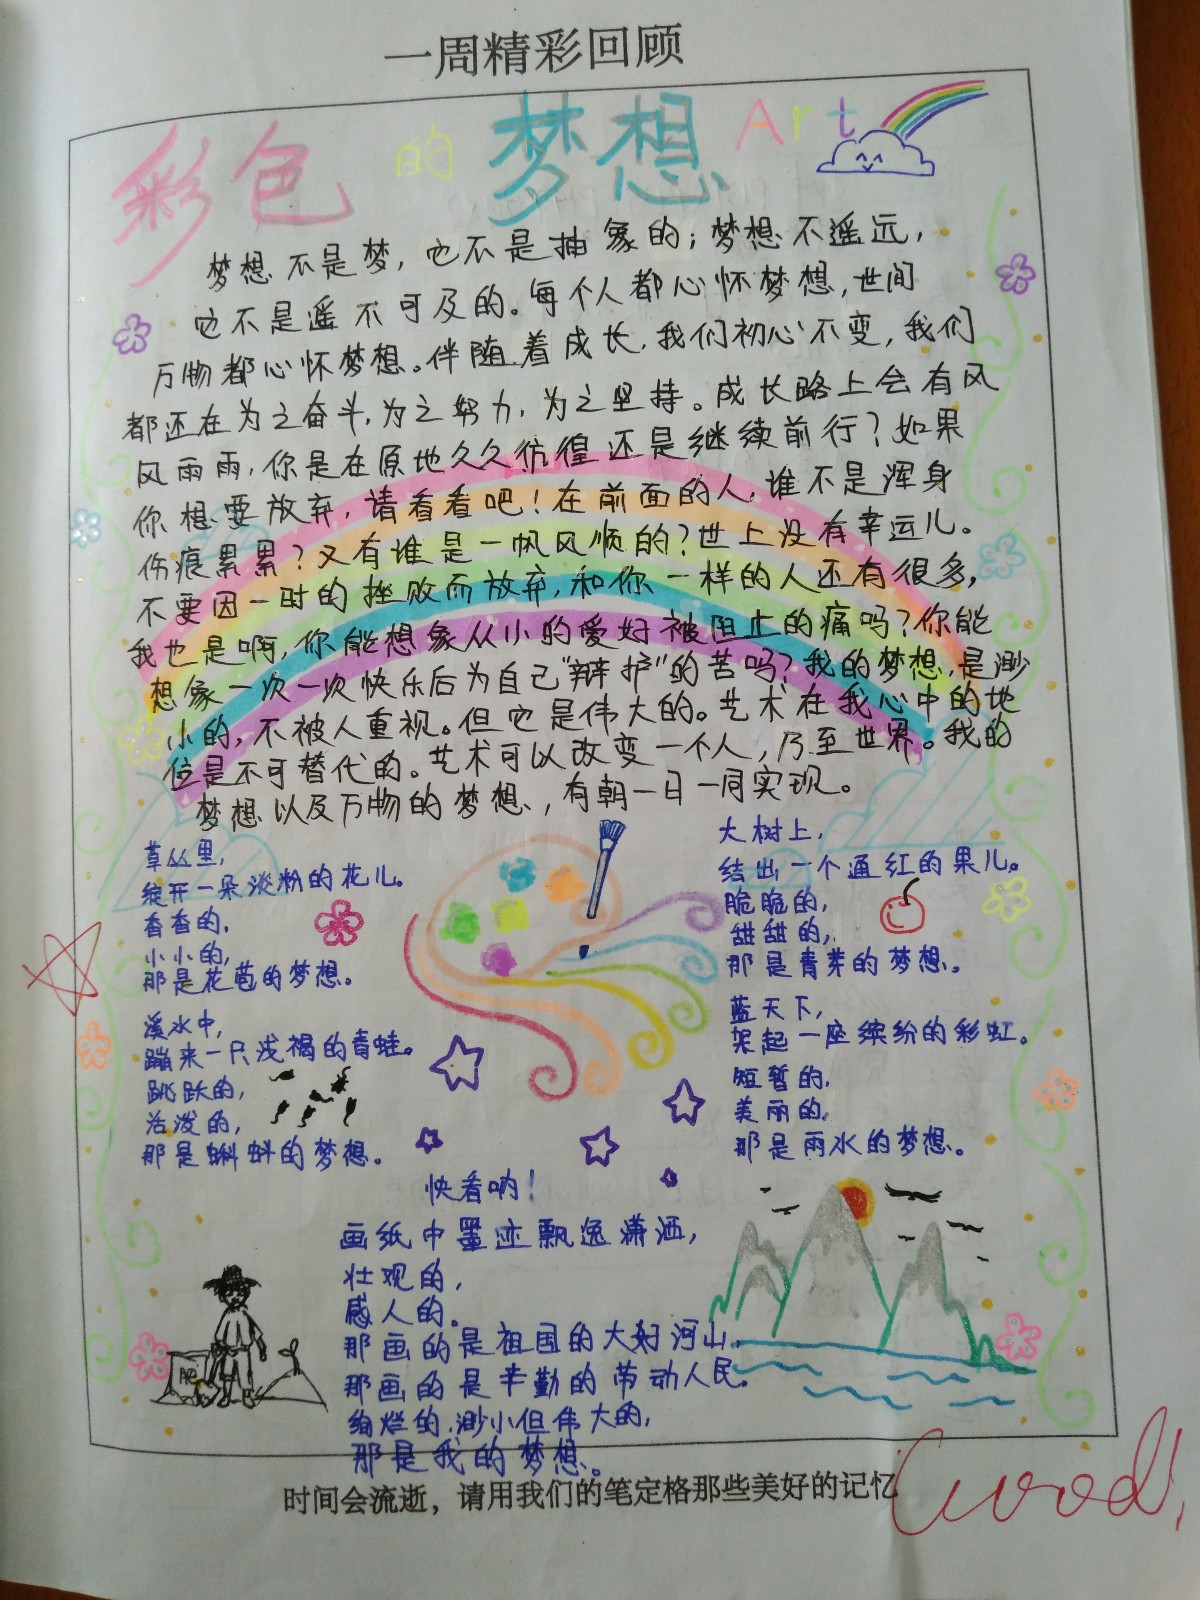 一周精彩回顾
彩色的梦想 Art
梦想不是梦，也不是抽象的；梦想不遥远，
它不是遥不可及的。每个人都心怀梦想，世间
万物都心怀梦想。伴随着成长，我们初心不变，我们
都还在为之奋斗，为之努力，为之坚持。成长路上会有风
风雨雨，你是在原地久久彷徨还是继续前行？如果
你想要放弃，请看看吧！在前面的人，谁不是浑身
伤痕累累？又有谁是一帆风顺的？世上没有幸运儿。
不要因一时的挫败而放弃，和你一样的人还有很多，
我也是啊，你能想象从小的爱好被阻止的痛吗？你能
想象一次一次快乐后为自己“辩护”的苦吗？我的梦想，是渺
小的，不被人重视。但它是伟大的。艺术在我心中的地
位是不可替代的。艺术可以改变一个人，乃至世界。我的
梦想以及万物的梦想，有朝一日一同实现。
草丛里，
绽开一朵淡粉的花儿。
香香的，
小小的，
那是花苞的梦想。
溪水中，
蹦来一只浅褐的青蛙。
跳跃的，
活泼的，
那是蝌蚪的梦想。
大树上，
结出一个通红的果儿。
脆脆的，
甜甜的，
那是青芽的梦想。
蓝天下，
架起一座缤纷的彩虹。
短暂的，
美丽的，
那是雨水的梦想。
快看呐！
画纸中墨迹飘逸潇洒，
壮观的，
感人的。
那画的是祖国的大好河山，
那画的是辛勤的劳动人民。
绚烂的，渺小但伟大的，
那是我的梦想。
肥
时间会流逝，请用我们的笔定格那些美好的记忆
Good!